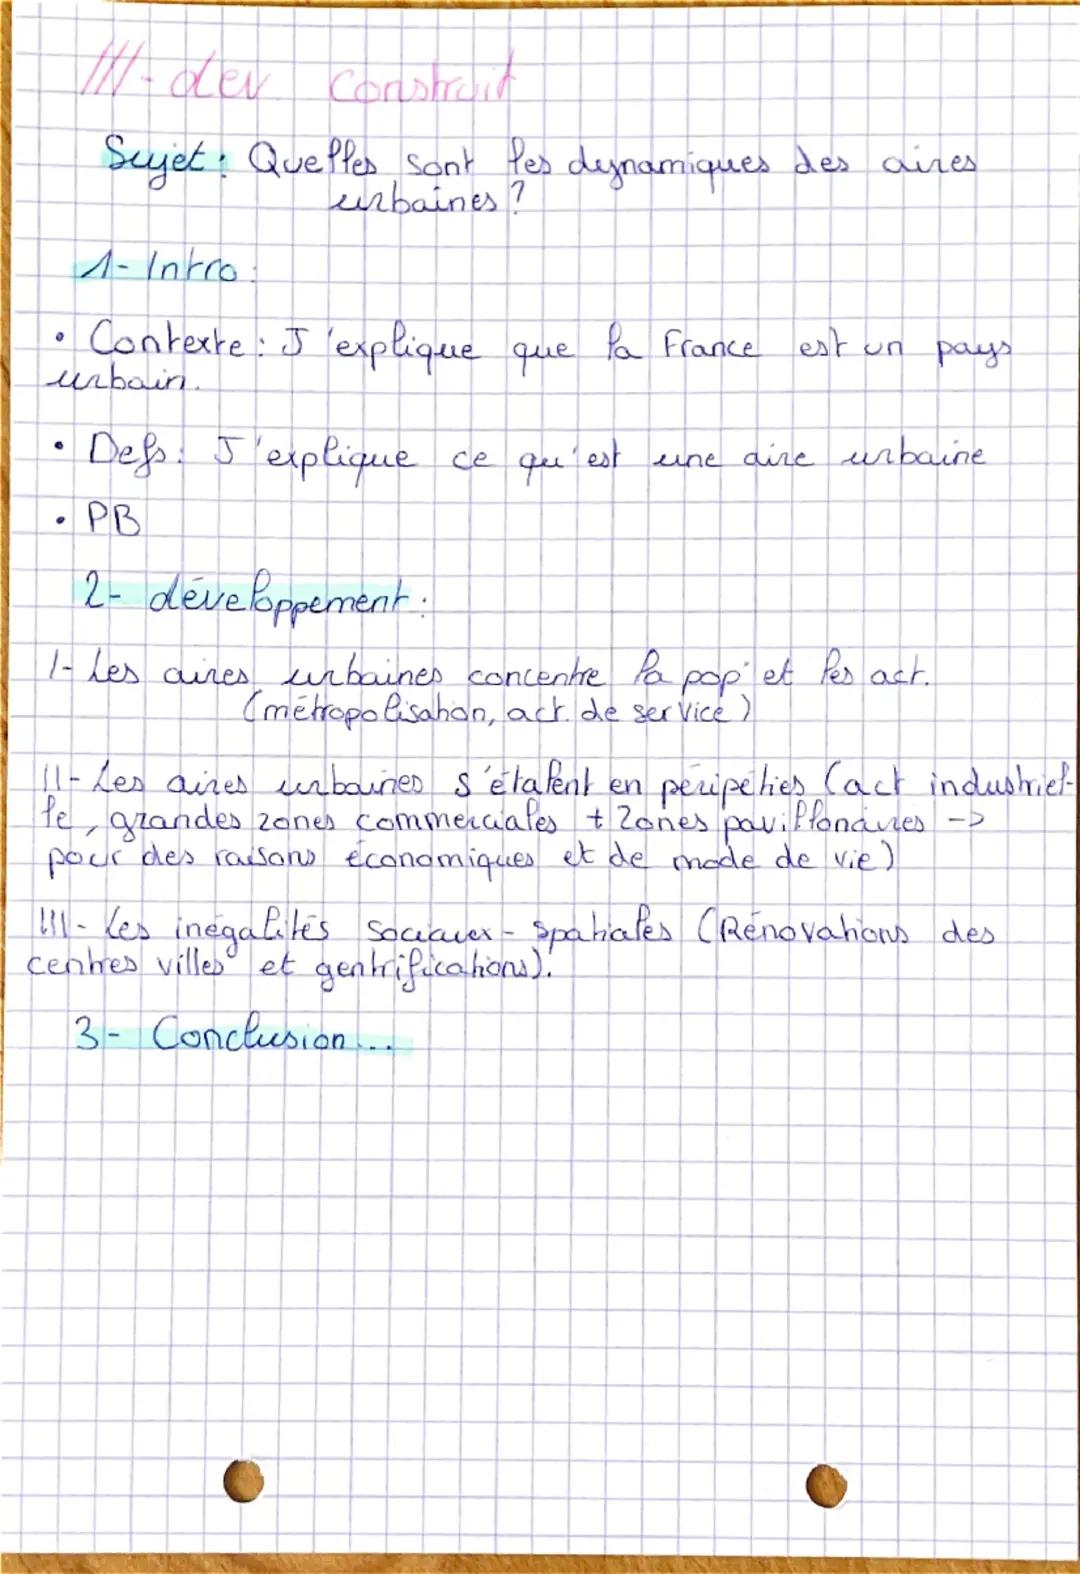 III - dev construit
Sujet : Quelles sont les dynamiques des aires
urbaines ?
1- Intro :
• Contexte : J'explique que la France est un pays
urbain.
• Defs : J'explique ce qu'est une aire urbaine
• PB
2- développement :
I- Les aires urbaines concentre la pop° et les act.
(métropolisation, act. de service)
II- Les aires urbaines s'étalent en péripéties (act industriel-
le, grandes zones commerciales + Zones pavillonaires ->
pour des raisons économiques et de mode de vie)
III- Les inégalités sociaux - spatiales (Rénovations des
centres villes et gentrifications).
3- Conclusion ...